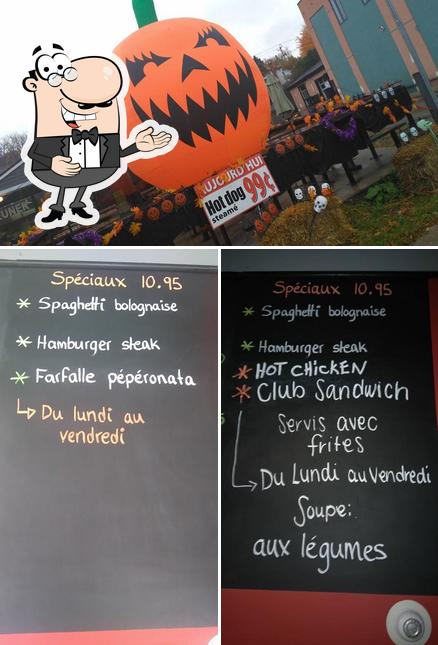 AUJOURD'HUI
Hot dog 99¢
steamé
Spéciaux 10.95
* Spaghetti bolognaise
* Hamburger steak
* Farfalle pépéronata
Du lundi au
vendredi
Spéciaux 10.95
* Spaghetti bolognaise
* Hamburger steak
* HOT CHICKEN
* Club Sandwich
Servis avec
frites
Du Lundi au Vendredi
Soupe:
aux légumes